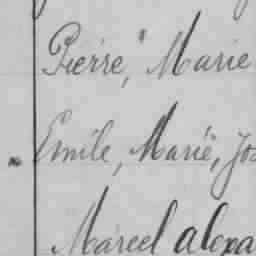 Pierre, Marie
Emile, Marie, Jos
Marcel alexa